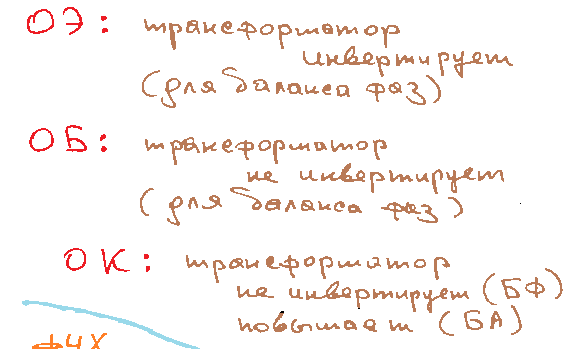 ОЭ: трансформатор
инвертирует
(для баланса фаз)
ОБ: трансформатор
не инвертирует
(для баланса фаз)
ОК: трансформатор
не инвертирует (БФ)
повышает (БА)
ФЧХ